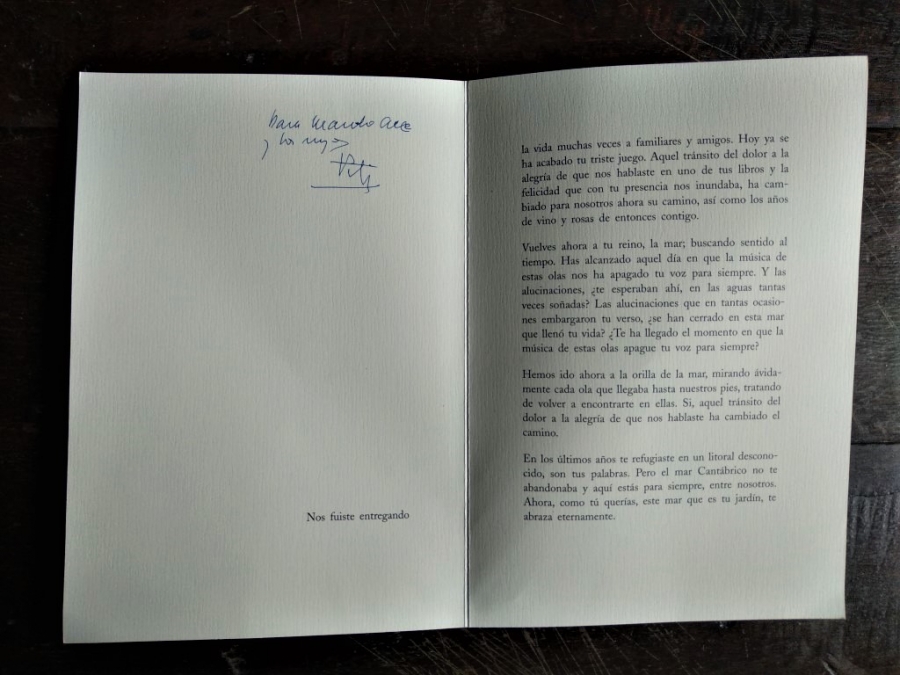 Para Marcelo Arce
y los suyos
Nos fuiste entregando
la vida muchas veces a familiares y amigos. Hoy ya se
ha acabado tu triste juego. Aquel tránsito del dolor a la
alegría de que nos hablaste en uno de tus libros y la
felicidad que con tu presencia nos inundaba, ha cam-
biado para nosotros ahora su camino, así como los años
de vino y rosas de entonces contigo.
Vuelves ahora a tu reino, la mar; buscando sentido al
tiempo. Has alcanzado aquel día en que la música de
estas olas nos ha apagado tu voz para siempre. Y las
alucinaciones, ¿te esperaban ahí, en las aguas tantas
veces soñadas? Las alucinaciones que en tantas ocasio-
nes embargaron tu verso, ¿se han cerrado en esta mar
que llenó tu vida? ¿Te ha llegado el momento en que la
música de estas olas apague tu voz para siempre?
Hemos ido ahora a la orilla de la mar, mirando ávida-
mente cada ola que llegaba hasta nuestros pies, tratando
de volver a encontrarte en ellas. Si, aquel tránsito del
dolor a la alegría de que nos hablaste ha cambiado el
camino.
En los últimos años te refugiaste en un litoral descono-
cido, son tus palabras. Pero el mar Cantábrico no te
abandonaba y aquí estás para siempre, entre nosotros.
Ahora, como tú querías, este mar que es tu jardín, te
abraza eternamente.